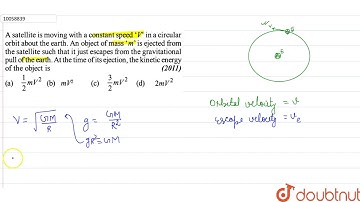 10058839
A satellite is moving with a constant speed 'V' in a circular
orbit about the earth. An object of mass 'm' is ejected from
the satellite such that it just escapes from the gravitational
pull of the earth. At the time of its ejection, the kinetic energy
of the object is (2011)
(a) 1/2 mV² (b) mV² (c) 3/2 mV² (d) 2mV²
V = √GM/R g = GM/R²
gR² = GM
Orbital velocity = v
Escape velocity = ve
doubtnut